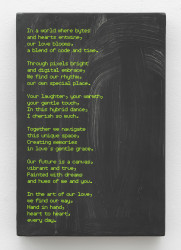 In a world where bytes
and hearts entwine,
our love blooms,
a blend of code and time.
Through pixels bright
and digital embrace,
We find our rhythm,
our own special place.
Your laughter, your warmth,
your gentle touch,
In this hybrid dance,
I cherish so much.
Together we navigate
this unique space,
Creating memories
in love's gentle grace.
Our future is a canvas,
vibrant and true,
Painted with dreams
and hues of me and you.
In the art of our love,
we find our way,
Hand in hand,
heart to heart,
every day.